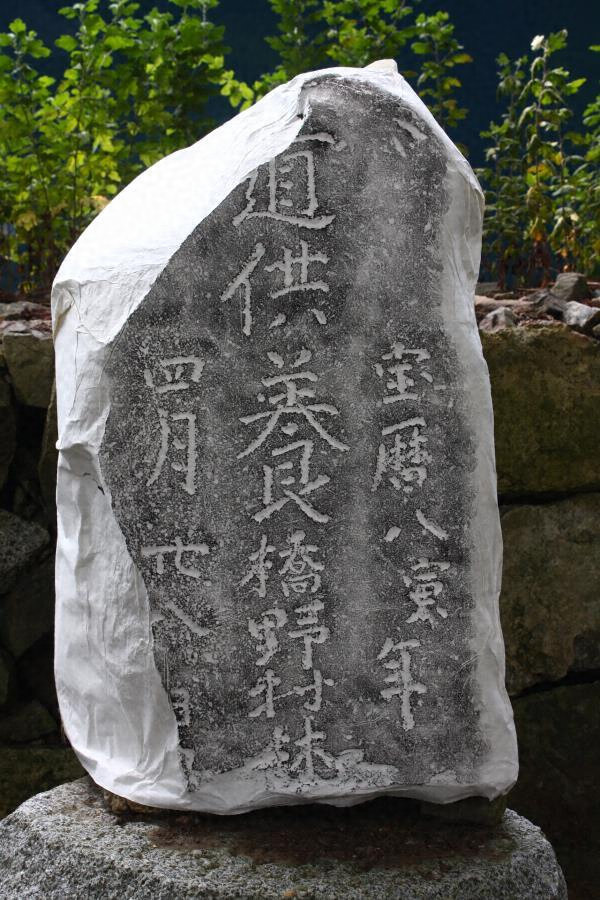 宝暦八寅年
道供養橋野村
四月廿八日